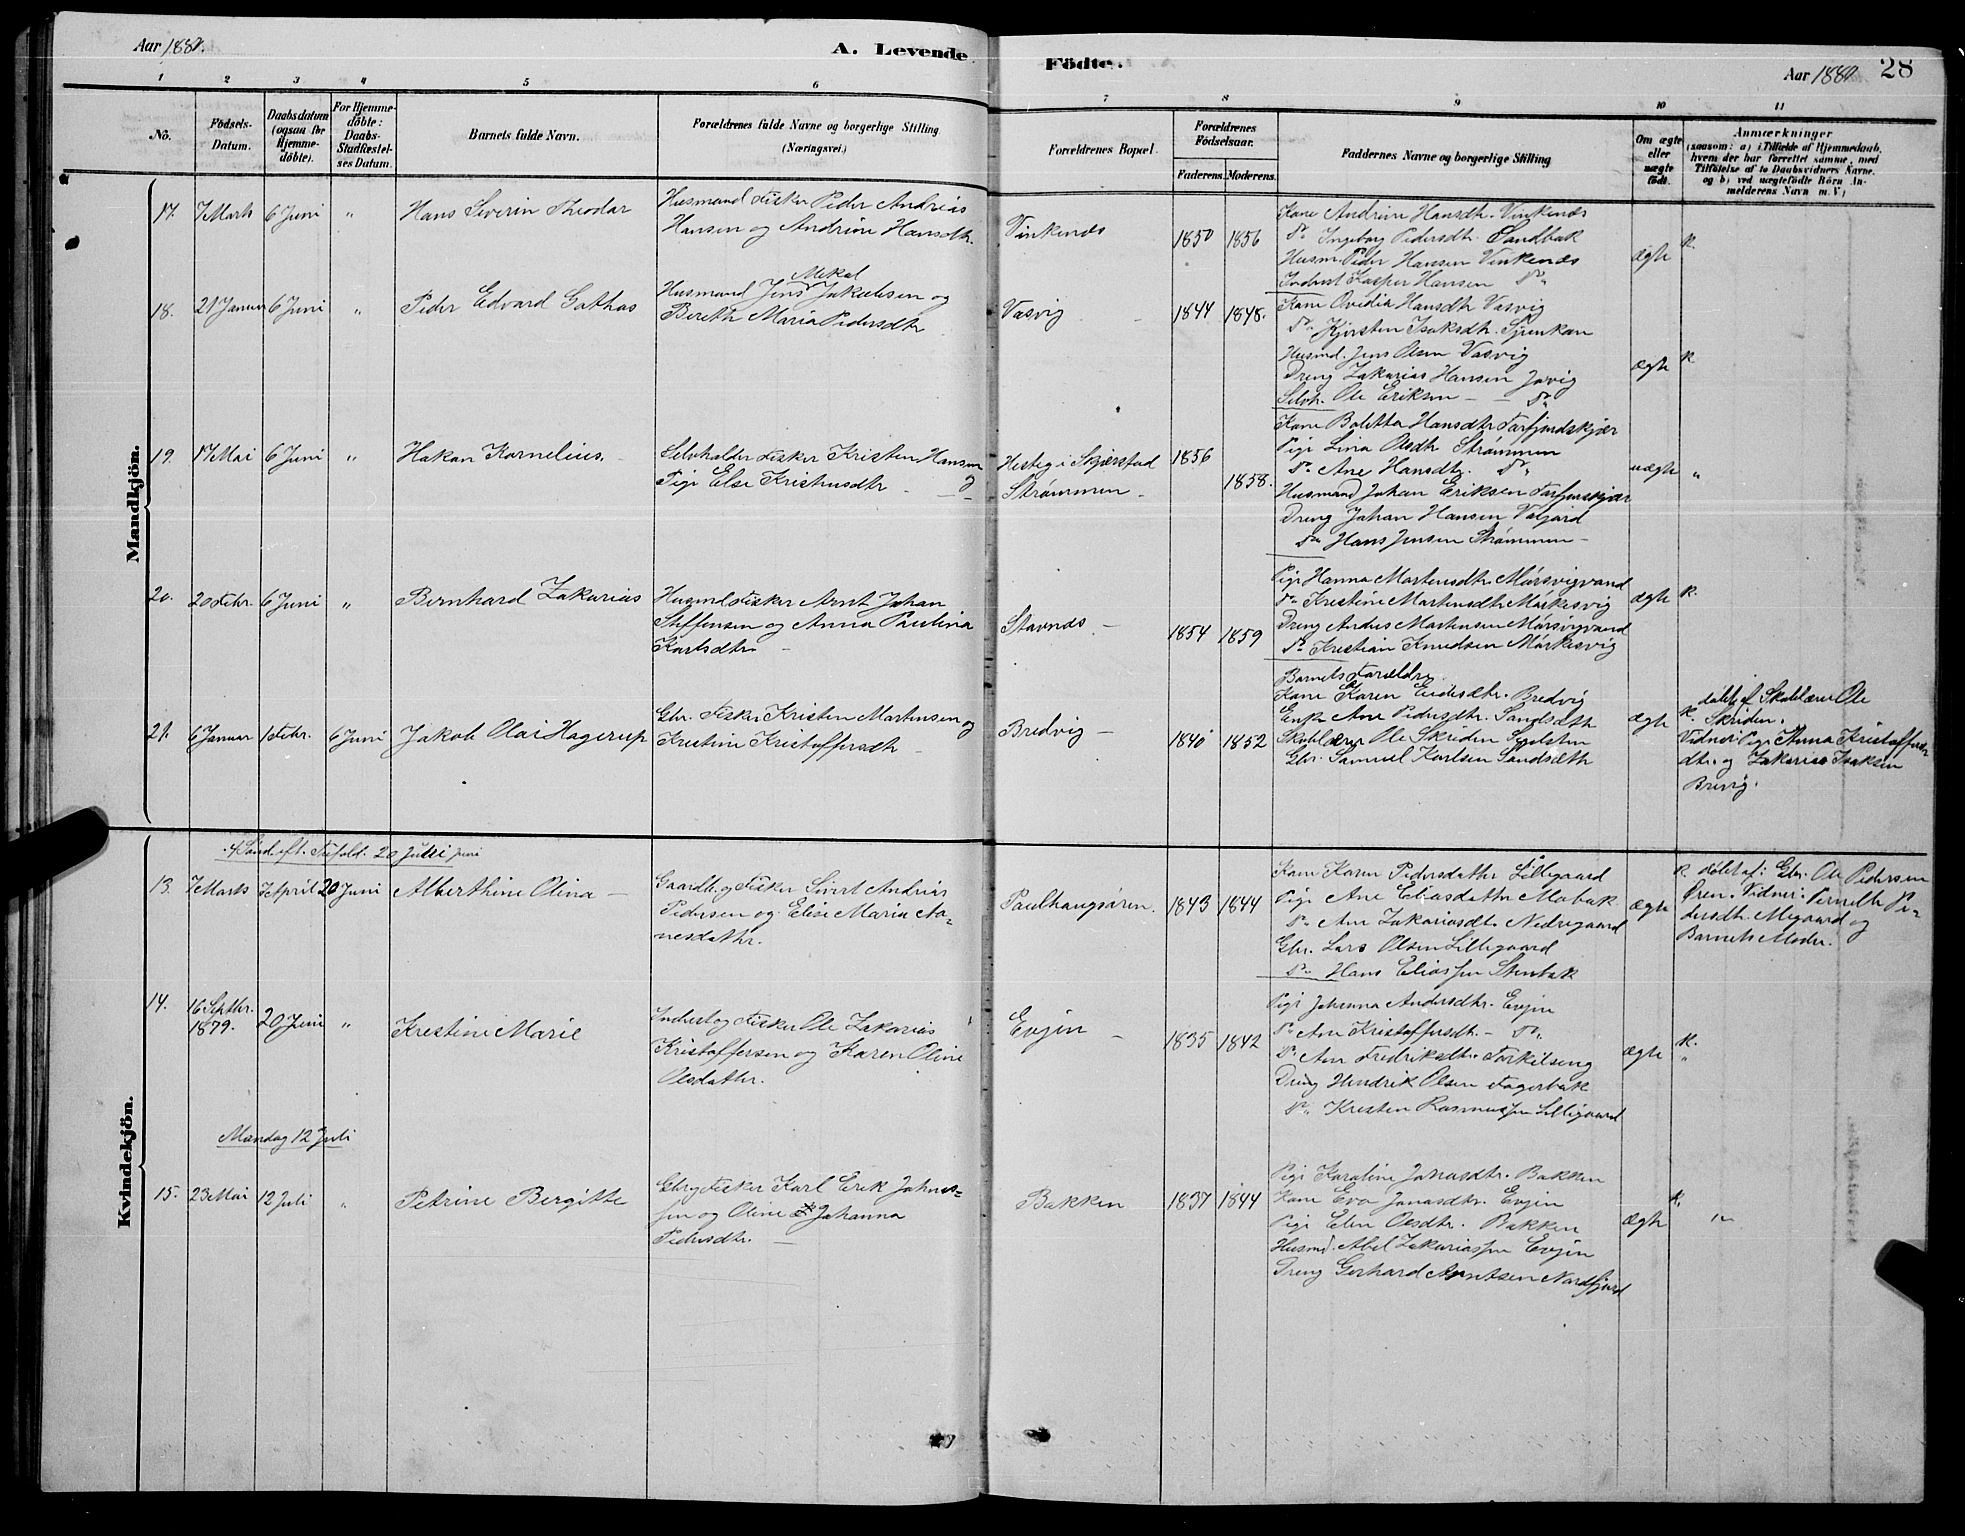 Aar 1880.
A. Levende
Födte.
Aar 1880
28
1 2 3 4 5 6 7 8 9 10 11
No.
Födsels-
Datum.
Daabsdatum
(ogsaa for
Hjemme-
döbte).
For Hjemme-
döbte:
Daabs-
Stadfæstel-
ses Datum.
Barnets fulde Navn.
Forældrenes fulde Navne og borgerlige Stilling
(Næringsvei.)
Forældrenes Bopæl.
Forældrenes
Födselsaar.
Faderens. Moderens.
Faddernes Navne og borgerlige Stilling
Om ægte
eller
uægte
födt.
Anmærkninger
(saasom: a) i Tilfælde af Hjemmedaab,
hvem der har forrettet samme, med
Tilföielse af to Daabsvidners Navne,
og b) ved uægtefödte Börn An-
melderens Navn m. V.)
Mandkjön.
17. 7 Marts 6 Juni " Hans Severin Theodor
Husmand Fisker Peder Andreas
Hansen og Andrine Hansdtr.
Vinkenes 1850 1856
Kone Andrine Hansdtr. Vinkenes
Do Ingeborg Pedersdtr. Sandbak
Husm. Peder Hansen Vinkenes
Inderst Kasper Hansen Do
ægte K.
18. 21 Januar 6 Juni " Peder Edvard Gathas
Mekal
Husmand Jens Jakobsen og
Bereth Maria Pedersdtr
Vasvig 1844 1848.
Kone Ovedia Hansdtr Vasvig
Do Kjersten Isaksdtr.
Husmd. Jens Olsen Vasvig
Dreng Zakarias Hansen
Selvh. Ole Eriksen - Do
ægte K
19. 17 Mai 6 Juni " Hakon Kornelius.
Selvholder Fisker Kristen Hansen
Pige Else Kristensdtr og
Hesteg i Skjerstad
Strømmen
1856 1858.
Kone Boletta Hansdtr Farfjordskjær
Pige Lina Olsdtr Strømmen
Do Ane Hansdtr. Do
Husmand Johan Eriksen
Dreng Johan Hansen Valjord
Do Hans Jensen Strømmen
uægte "
20. 20 Febr. 6 Juni " Bernhard Zakarias
Husmd Fisker Arnt Johan
Steffensen og Anna Paulina
Karlsdtr
Stavnes 1854 1859
Pige Hanna Martensdtr. Mørsvigvand
Do Kristine Martensdtr Mørkesvig
Dreng Anders Martensen Mørsvigvand
Do Kristian Knudsen Mørkesvig
ægte K.
21. 6 Januar 1 Febr. 6 Juni Jakob Olai Hagerup
Gbr. Fisker Kristen Martensen og
Kristine Kristoffersdtr
Bredvig 1840 1852
Barnets Forældre
Kone Karen Endesdtr. Bredvig
Enke Ane Pedersdtr. Sandsæth
Skolelærer Ole Skriden
Gbr. Samuel Karlsen Sandsæth
ægte K.
döbt af Skolelærer Ole
Skriden.
Vidner: Pige Anna Kristoffers-
dtr. og Zakarias Isaksen
Brevig.
Kvindekjön.
4 Sönd. eft. Trefold. 20 Juni
13. 7 Marts 7 April 20 Juni Alberthine Olina
Gaardb. og Fisker Sivert Andreas
Pedersen og Elise Maria Aa-
nesdatter.
Paulhaugsøren. 1843 1844
Kone Karen Pedersdatter Lillegaard
Pige Ane Eliasdatter Mobak
Do Ane Zakariasdtr Nedregaard
Gbr. Lars Olsen Lillegaard
Do Hans Eliassen Stenbak
ægte
K döbt af: Gbr. Ole Pedersen
Øren. Vidner: Pernelle Pe-
dersdtr. Megaard og
Barnets Moder.
14. 16 Septbr.
1879. 20 Juni " Krestine Marie
Inderst og Fisker Ole Zakarias
Kristoffersen og Karen Oline
Olsdatter.
Evjen 1835 1842
Pige Johanna Andersdtr. Evjen
Do Ane Kristoffersdtr. Do
Do Ane Fredriksdtr. Torkilseng
Dreng Hendrik Olsen Fagerbak
Do Kresten Rasmussen Lillegaard
ægte K. "
Mandag 12 Juli
15. 23 Mai 12 Juli " Petrine Bergitte
Gbr og Fisker Karl Erik Johns-
sen og Oline Johanna
Pedersdtr.
Bakken 1837 1844
Pige Karoline Jonasdtr. Bakken
Kone Eva Jonasdtr. Evjen
Pige Elen Olsdtr. Bakken
Husmd. Abel Zakariassen Evjen
Dreng Gerhard Arntsen Nordfjord
ægte K "